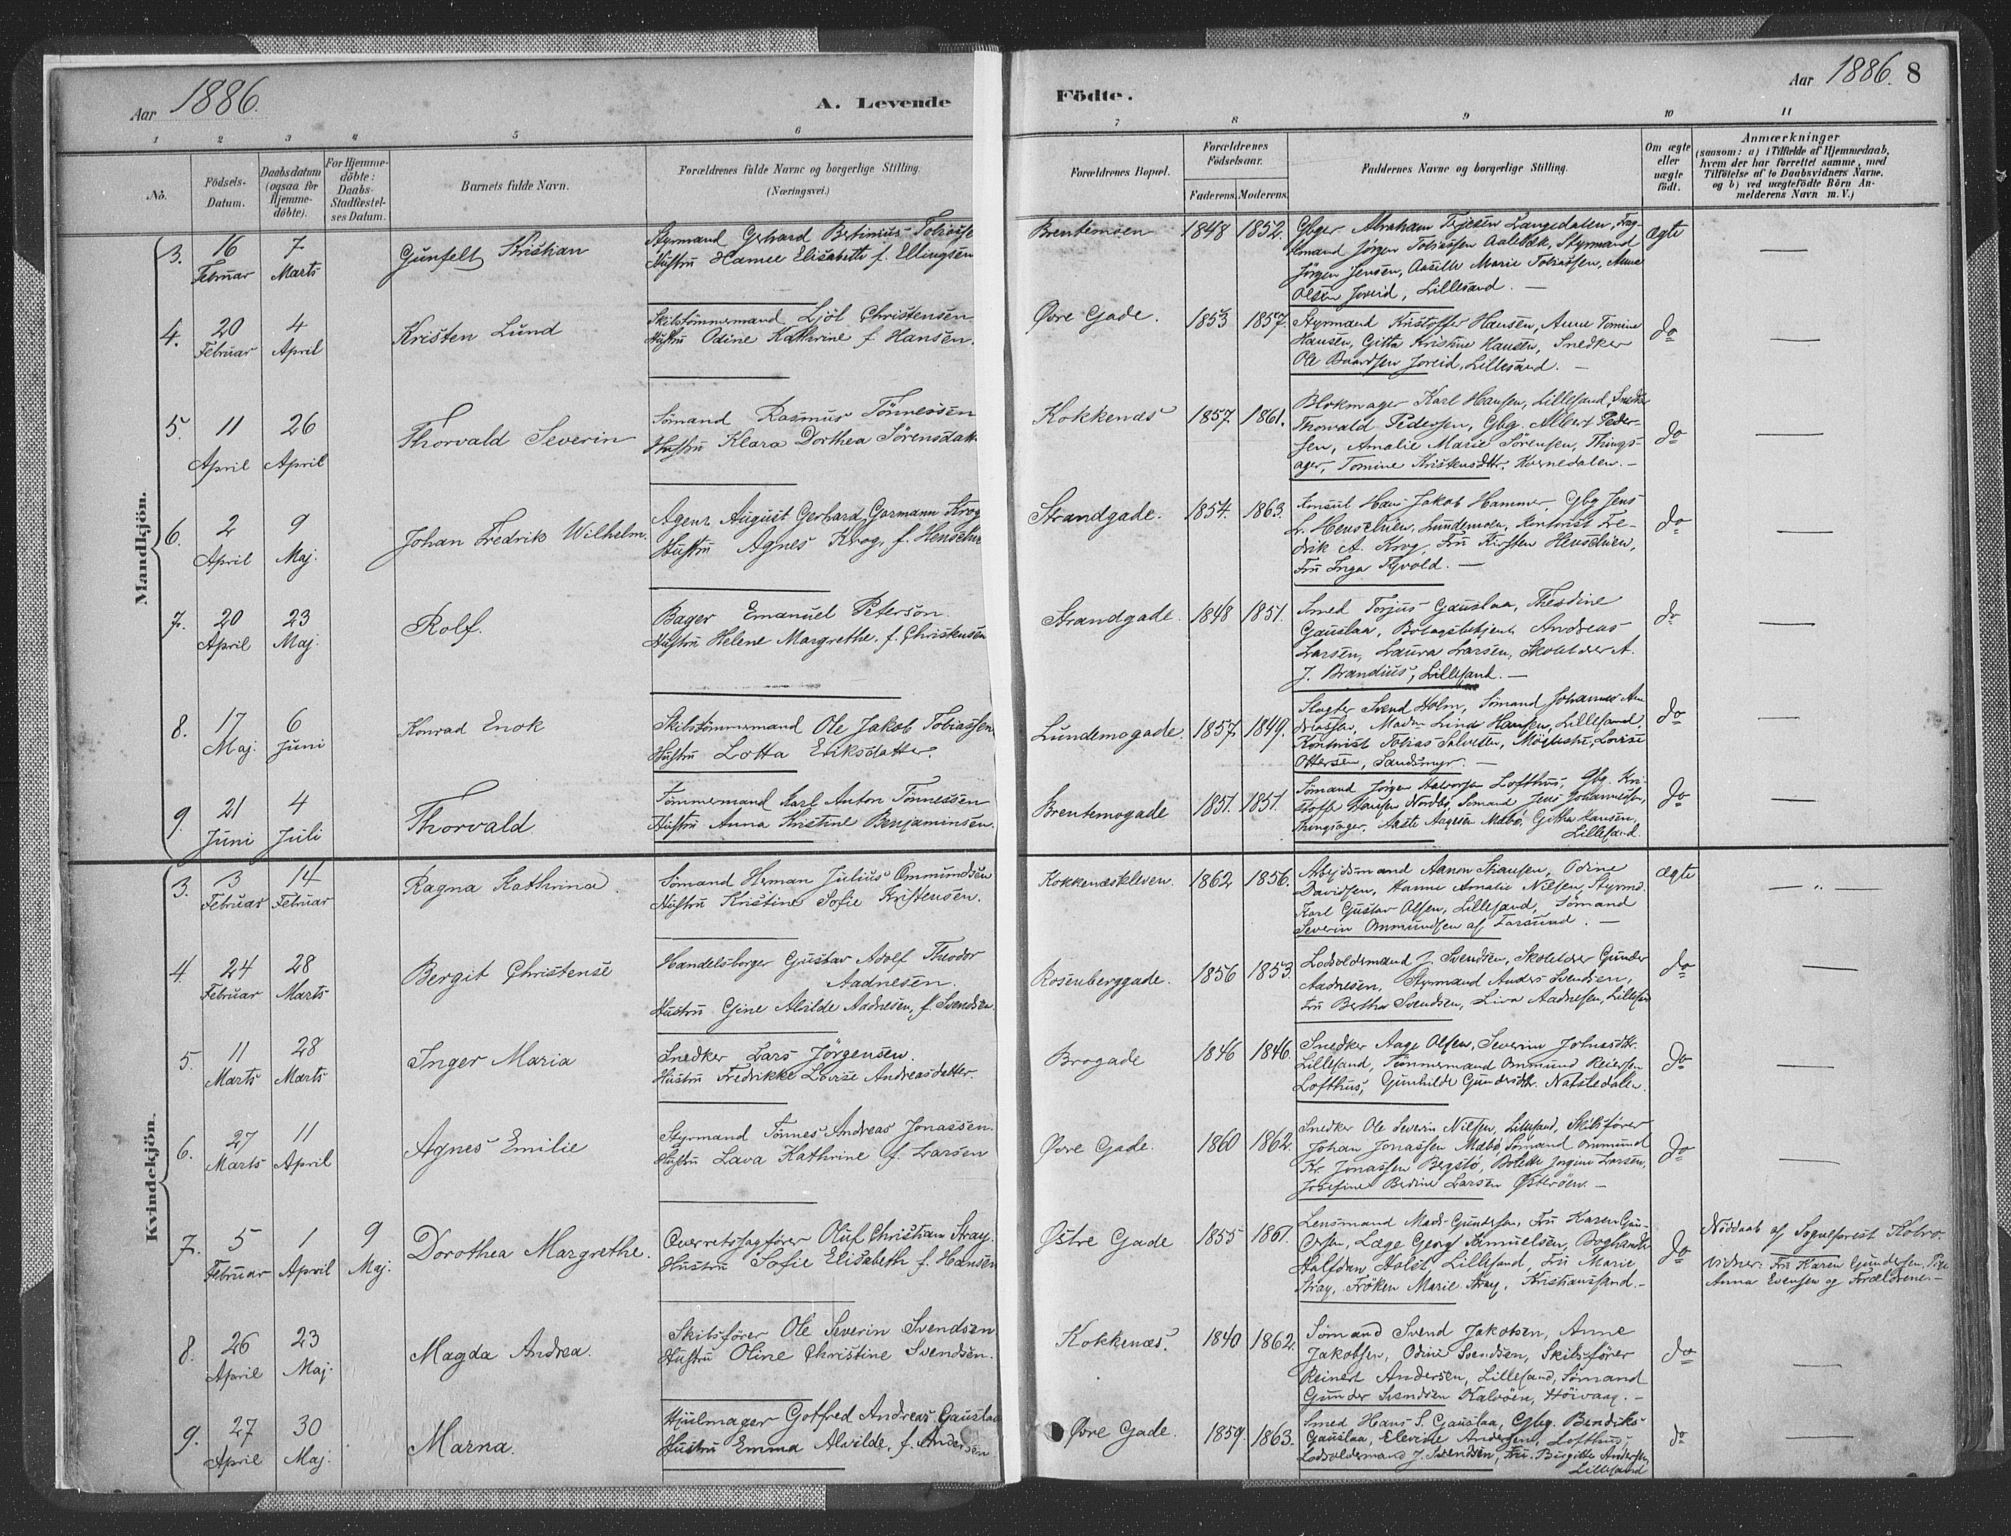 Aar 1886.
A. Levende
Födte.
Aar 1886. 8
1 2 3 4 5 6 7 8 9 10 11
No.
Födsels-
Datum.
Daabsdatum
(ogsaa for
Hjemme-
döbte).
For Hjemme-
döbte:
Daabs-
Stadfæstel-
ses Datum.
Barnets fulde Navn.
Forældrenes fulde Navne og borgerlige Stilling.
(Næringsvei.)
Forældrenes Bopæl.
Forældrenes
Födselsaar.
Faderens. Moderens.
Faddernes Navne og borgerlige Stilling.
Om ægte
eller
uægte
födt.
Anmærkninger
(saasom: a) i Tilfælde af Hjemmedaab,
hvem der har forrettet samme, med
Tilföielse af to Daabsvidners Navne,
og b) ved uægtefödte Börn An-
melderens Navn m. V.)
Mandkjön.
3. 16 Februar 7 Marts
Gunfelt Kristian
Styrmand Gerhard Bertinius Tobiasse
Hustru Hanne Elisabeth f. Ellingsen
Brentemoen 1848 1852.
Gbger Abraham Terjesen Langedalen, Fag-
mand Jørgen Tobiassen Aalebæk, Styrmand
Jørgen Jensen, Aasille Marie Tobiassen, Anne
Olsen Joreid, Lillesand. —
ægte
4. 20 Februar 4 April
Kristen Lund
Skibstømmermand Ljöl Christensen
Hustru Odine Kathrine f. Hansen.
Øvre Gade. 1853 1857.
Styrmand Kristoffer Hansen, Anne Tomine
Hansen, Gitta Kristine Hansen, Snedker
Ole Baardsen Joreid, Lillesand. —
do
5. 11 April 26 April
Thorvald Severin
Sømand Rasmus Tönnessen
Hustru Klara Dorthea Sörensdatt
Kokkenæs 1857. 1861.
Blokmager Karl Hansen, Lillesand, Snedk
Thorvald Pedersen, Gbg. Albert Peder-
sen, Amalie Marie Sörensen, Things-
ager, Tomine Kristensdtr. Kornedalen. —
do
6. 2 April 9 Maj.
Johan Fredrik Wilhelm.
Agent August Gerhard Garmann Krog
Hustru Agnes Krog, f. Henschie
Strandgade. 1854. 1863.
Konsul Hans Jakob Hammer, Gbg Jens
L. Henschien, Lundemoen, Kontorist Fre-
drik A. Krog, Fru Kirsten Henschien,
Fru Inga Tyvold. —
do
7. 20 April 23 Maj.
Rolf.
Bager Emanuel Peterson.
Hustru Helene Margrethe f. Christensen
Strandgade. 1848 1851.
Smed Torjus Gauslaa, Theodine
Gauslaa, Bolagsbetjent Andreas
Larsen, Laura Larsen, Skoleder A.
J. Brandius, Lillesand. —
do
8. 17 Maj. 6 Juni
Konrad Enok
Skibstømmermand Ole Jakob Tobiassen
Hustru Lotta Eriksdatter.
Lundemogade. 1857 1849.
Slagter Svend Holm, Sömand Johannes An-
dreassen, Madm Lina Hansen, Lillesand,
Kontorist Tobias Salvesen, Möglestu, Lovise
Ottersen, Sandsmyr. —
do
9. 21 Juni 4 Juli
Thorvald
Tömmermand Karl Anton Tönnessen
Hustru Anna Kristine Benjaminsen.
Brentemogade 1851. 1851.
Sömand Jörgen Halvorsen Lofthus, Gbg. Kri-
stoffe Hansen Nordbö, Sömand Jens Johannessen,
Thingsager, Aasta Aagesen Mæbö, Githa Hansen,
Lillesand.
do
Kvindekjön.
3. 3 Februar 14 Februar
Ragna Kathrina.
Sømand Herman Julius Ommundsen
Hustru Kristine Sofie Kristensen.
Kokkenæskleven. 1862 1856.
Arbejdsmand Aanon Hansen, Odine
Davidsen, Hanne Amalie Nielsen, Styrmd.
Karl Gustav Olsen, Lillesand, Sömand
Severin Ommundsen af Farsund. —
ægte — " —
4. 24 Februar 28 Marts
Bergit Christense
Handelsborger Gustav Adolf Theodor
Aadnesen.
Hustru Gine Alvilde Aadnesen, f. Svendsen
Rosenberggade. 1856 1853.
Lodsoldermand J. Svendsen, Skoleder Gunder
Aadnesen, Styrmand Anders Svendsen,
Fru Bertha Svendsen, Liva Aadnesen, Lillesan
do
5. 11 Marts 28 Marts
Inger Maria
Snedker Lars Jörgensen.
Hustru Fredrikke Lovise Andreasdatter.
Brogade 1846 1846.
Snedker Aage Olsen, Severine Johnsdtr.
Lillesand, Tömmermand Ommund Reiersen
Lofthus, Gunhilde Gundersdtr. Natstedalen.
do
6. 27 Marts 11 April
Agnes Emilie
Styrmand Tönnes Andreas Jonassen.
Hustru Lava Kathrine f. Larsen
Øvre Gade. 1860 1862.
Snedker Ole Severin Nielsen, Lillesand, Skibsfører
Johan Jonassen Mæbö, Sömand Ommund
Kr. Jonassen Bergstö, Bolette Jörgine Larsen,
Josefine Berdine Larsen Østeröen. —
do
7. 5 Februar 1 April 9 Maj.
Dorothea Margrethe.
Overretssagfører Oluf Christian Stray.
Hustru Sofie Elisabeth f. Hansen
Østre Gade 1855 1861.
Lensmand Mads Gundersen, Fru Karen Gun-
dersen, Læge Georg Samuelsen, Boghandle
Halfdan Holst, Lillesand, Fru Marie
Stray, Fröken Marie Stray, Kristianssand. —
do
Nöddaab af Sogneprest Kolro.
Vidner: Fru Karen Gundersen, Pige
Anna Evensen og Forældrene. —
8. 26 April 23 Maj.
Magda Andrea.
Skibsfører Ole Severin Svendsen
Hustru Oline Christine Svendsen.
Kokkenæs. 1840 1862.
Sömand Svend Jakobsen, Anne
Jakobsen, Odine Svendsen, Skibsfører
Reinert Andersen, Lillesand, Sömand
Gunder Svendsen Kalvöen, Höivaag. —
do
9. 27 April 30 Maj.
Marna.
Hjulmager Gotfred Andreas Gauslaa
Hustru Emma Alvilde, f. Andersen
Øvre Gade. 1859. 1863.
Smed Hans S. Gauslaa, Gbg. Bendik
Gauslaa, Elevine Andersen, Lofthus,
Lodsoldermand J. Svendsen, Fru Birgitte Andersen,
Lillesand
do